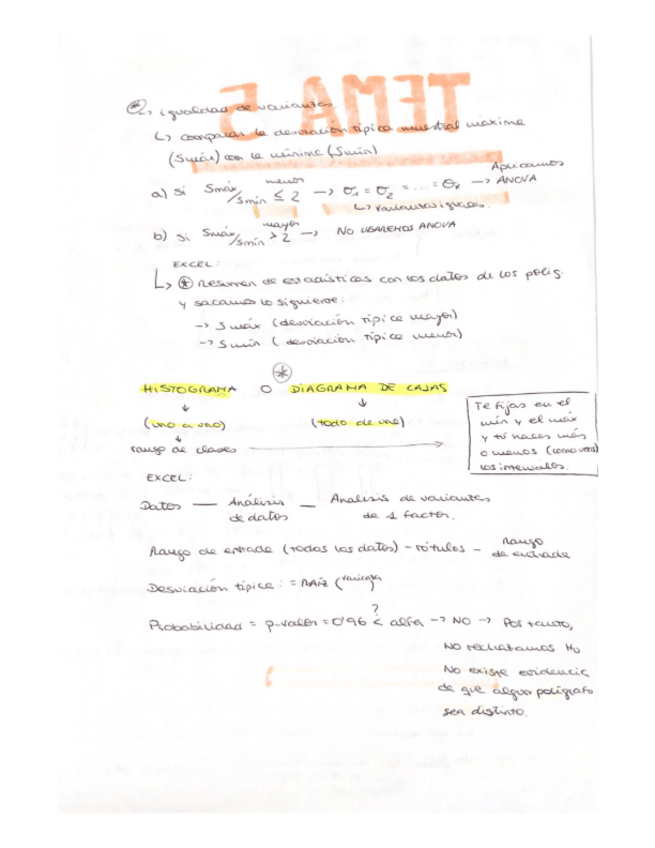 TEMA 5
* ↳ igualdad de variantes.
↳ comparar la desviación típica muestral máxima
(Smáx) con la mínima (Smín)
a) si Smáx/Smín ≤ 2 menor → σ1 = σ2 = ... = σk → Aplicamos ANOVA
↳ varianzas iguales.
b) si Smáx/Smín > 2 mayor → NO USAREMOS ANOVA
EXCEL:
↳ * Resumen de estadísticas con los datos de los polig.
y sacamos lo siguiente:
→ Smáx (desviación típica mayor)
→ Smín (desviación típica menor)
*
HISTOGRAMA O DIAGRAMA DE CAJAS
↓ ↓
(uno a uno) (todo de una)
↓
rango de clases →
Te fijas en el
mín y el máx
y tú haces más
o menos (como ves)
los intervalos.
EXCEL:
Datos — Análisis de datos — Analisis de variantes de 1 factor.
Rango de entrada (todos los datos) - rótulos - Rango de entrada
Desviación típica: = RAÍZ (varianza
Probabilidad = p-valor = 0'96 <? alfa → NO → Por tanto,
NO rechazamos H0
No existe evidencia
de que algun poligrafo
sea distinto.